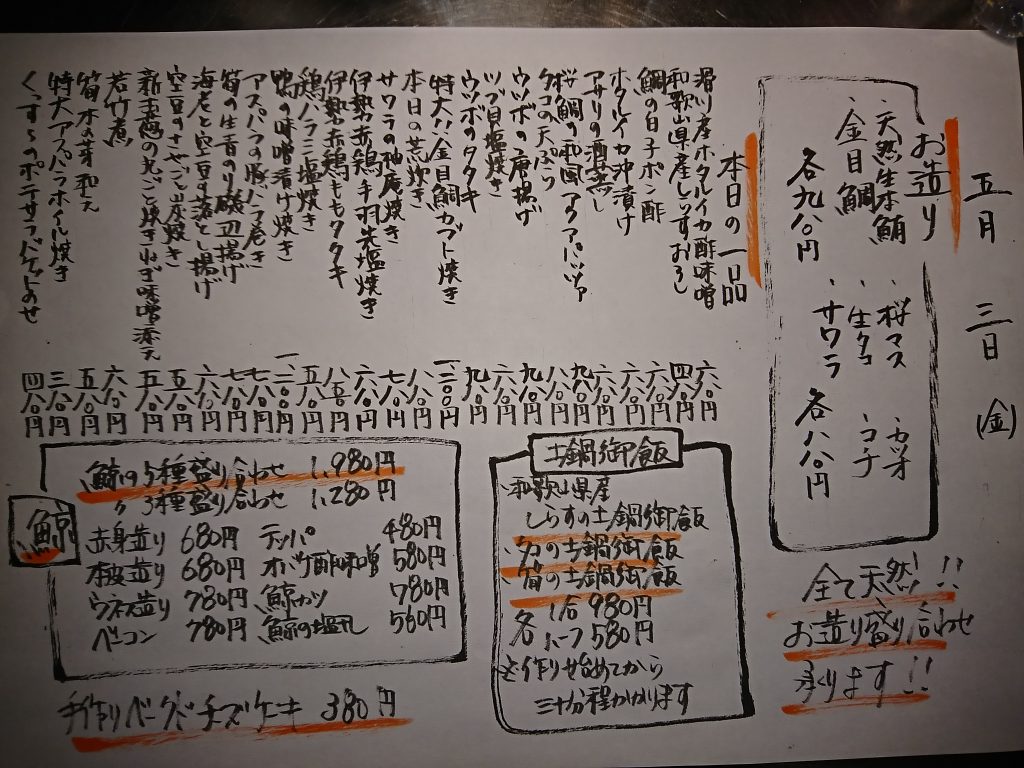 五月 三日 (金)
お造り
、天然生本鮪 、桜マス 、カツオ
、金目鯛 、生タコ 、コチ
各九八〇円 、サワラ 各八八〇円
全て天然!!
お造り盛り合わせ
承ります!!
本日の一品
滑川産ホタルイカ酢味噌 六八〇円
和歌山県産しらすおろし 四八〇円
鯛の白子ポン酢 六八〇円
ホタルイカ沖漬け 六八〇円
アサリの酒蒸し 六八〇円
桜鯛の和風アクアパッツァ 九八〇円
タコの天ぷら 八八〇円
ウツボの唐揚げ 九八〇円
ツブ貝塩焼き 六八〇円
ウツボのタタキ 九八〇円
特大!!金目鯛カブト焼き 一二八〇円
本日の荒炊き 八八〇円
サワラの柚庵焼き 七八〇円
伊勢赤鶏手羽先塩焼き 六八〇円
伊勢赤鶏ももタタキ 八五〇円
鶏ハラミ塩焼き 五八〇円
鴨の味噌漬け焼き 一二八〇円
アスパラの豚バラ巻き 七八〇円
筍の生青のり磯辺揚げ 七八〇円
海老と空豆の落とし揚げ 六八〇円
空豆のさやごと炭焼き 五八〇円
新玉葱の丸ごと焼きねぎ味噌添え 五八〇円
若竹煮 六八〇円
筍木の芽和え 五八〇円
特大アスパラホイル焼き 三八〇円
くずし のポテサラバゲットのせ 四八〇円
土鍋御飯
、和歌山県産
しらすの土鍋御飯
、タコの土鍋御飯
、筍の土鍋御飯
各 1合 980円
ハーフ 580円
※作り始めてから
三十分程かかります
鯨
鯨の5種盛り合わせ 1,980円
〃 3種盛り合わせ 1,280円
赤身造り 680円 テッパ 480円
本皮造り 680円 オバケ酢味噌 580円
ウネス造り 780円 鯨カツ 780円
ベーコン 780円 鯨の塩 560円
手作りベークドチーズケーキ 380円